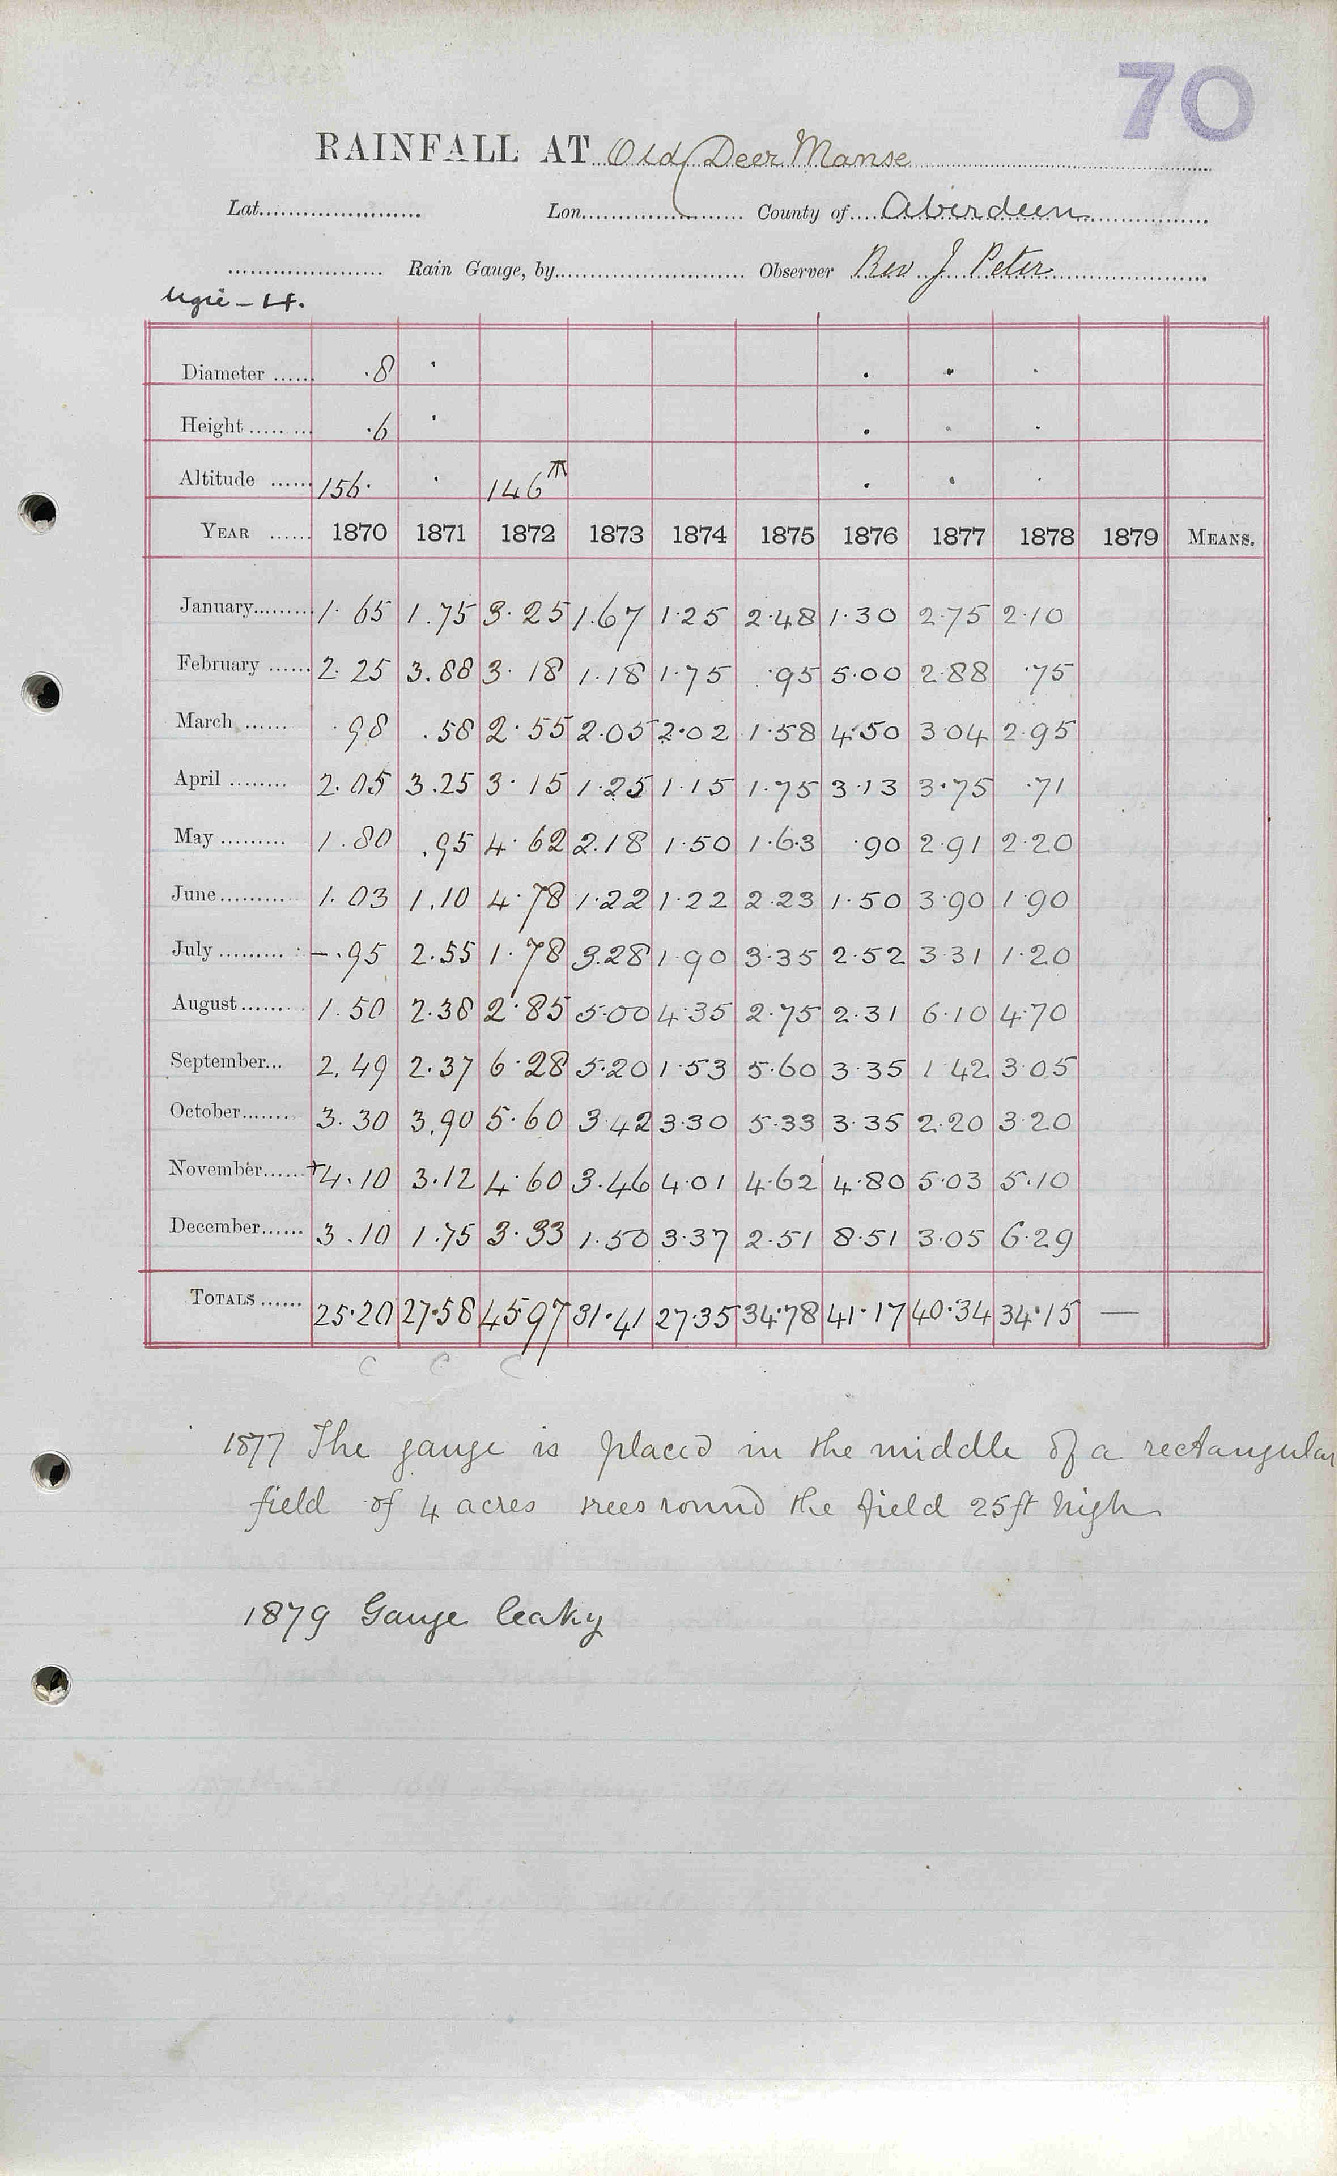 70
RAINFALL AT Old Deer Manse
Lat. Lon. County of Aberdeen
Rain Gauge, by Observer Rev J. Peter
Ugie - 14.
Diameter .8
Height .6
Altitude 156. 146
YEAR 1870 1871 1872 1873 1874 1875 1876 1877 1878 1879 MEANS.
January 1.65 1.75 3.25 1.67 1.25 2.48 1.30 2.75 2.10
February 2.25 3.88 3.18 1.18 1.75 .95 5.00 2.88 .75
March .98 .58 2.55 2.05 2.02 1.58 4.50 3 04 2.95
April 2.05 3.25 3.15 1.25 1.15 1.75 3.13 3.75 .71
May 1.80 .95 4.62 2.18 1.50 1.63 .90 2.91 2.20
June 1.03 1.10 4.78 1.22 1.22 2.23 1.50 3.90 1.90
July -.95 2.55 1.78 3.28 1 90 3.35 2.52 3 31 1.20
August 1.50 2.38 2.85 5.00 4.35 2.75 2.31 6.10 4.70
September 2.49 2.37 6.28 5.20 1.53 5.60 3.35 1 42 3.05
October 3.30 3.90 5.60 3.42 3.30 5.33 3.35 2.20 3.20
November +4.10 3.12 4.60 3.46 4.01 4.62 4.80 5.03 5.10
December 3.10 1.75 3.33 1.50 3.37 2.51 8.51 3.05 6.29
TOTALS 25.20 27.58 45 97 31.41 27.35 34.78 41.17 40.34 34.15 —
C C C
1877 The gauge is placed in the middle of a rectangular
field of 4 acres trees round the field 25ft high
1879 Gauge leaky